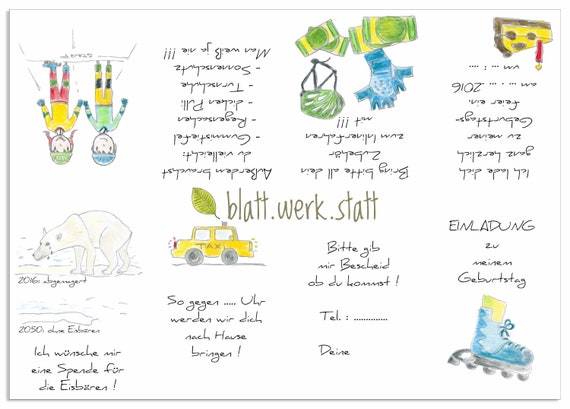 START
Außerdem brauchst
du vielleicht:
- Gummistiefel
- Regensachen
- dicken Pulli
- Turnschuhe
- Sonnenschutz
Man weiß ja nie !!!
Bring bitte all dein
Zubehör
zum Inlinerfahren
mit !!!
Ich lade dich
ganz herzlich
zu meiner
Geburtstags-
feier ein.
am ... . ... 2016
um ... : ...
blatt.werk.statt
2016: abgemagert
2050: ohne Eisbären
Ich wünsche mir
eine Spende für
die Eisbären !
TAXI
So gegen ..... Uhr
werden wir dich
nach Hause
bringen !
Bitte gib
mir Bescheid
ob du kommst !
Tel. : ..............
Deine
EINLADUNG
zu
meinem
Geburtstag